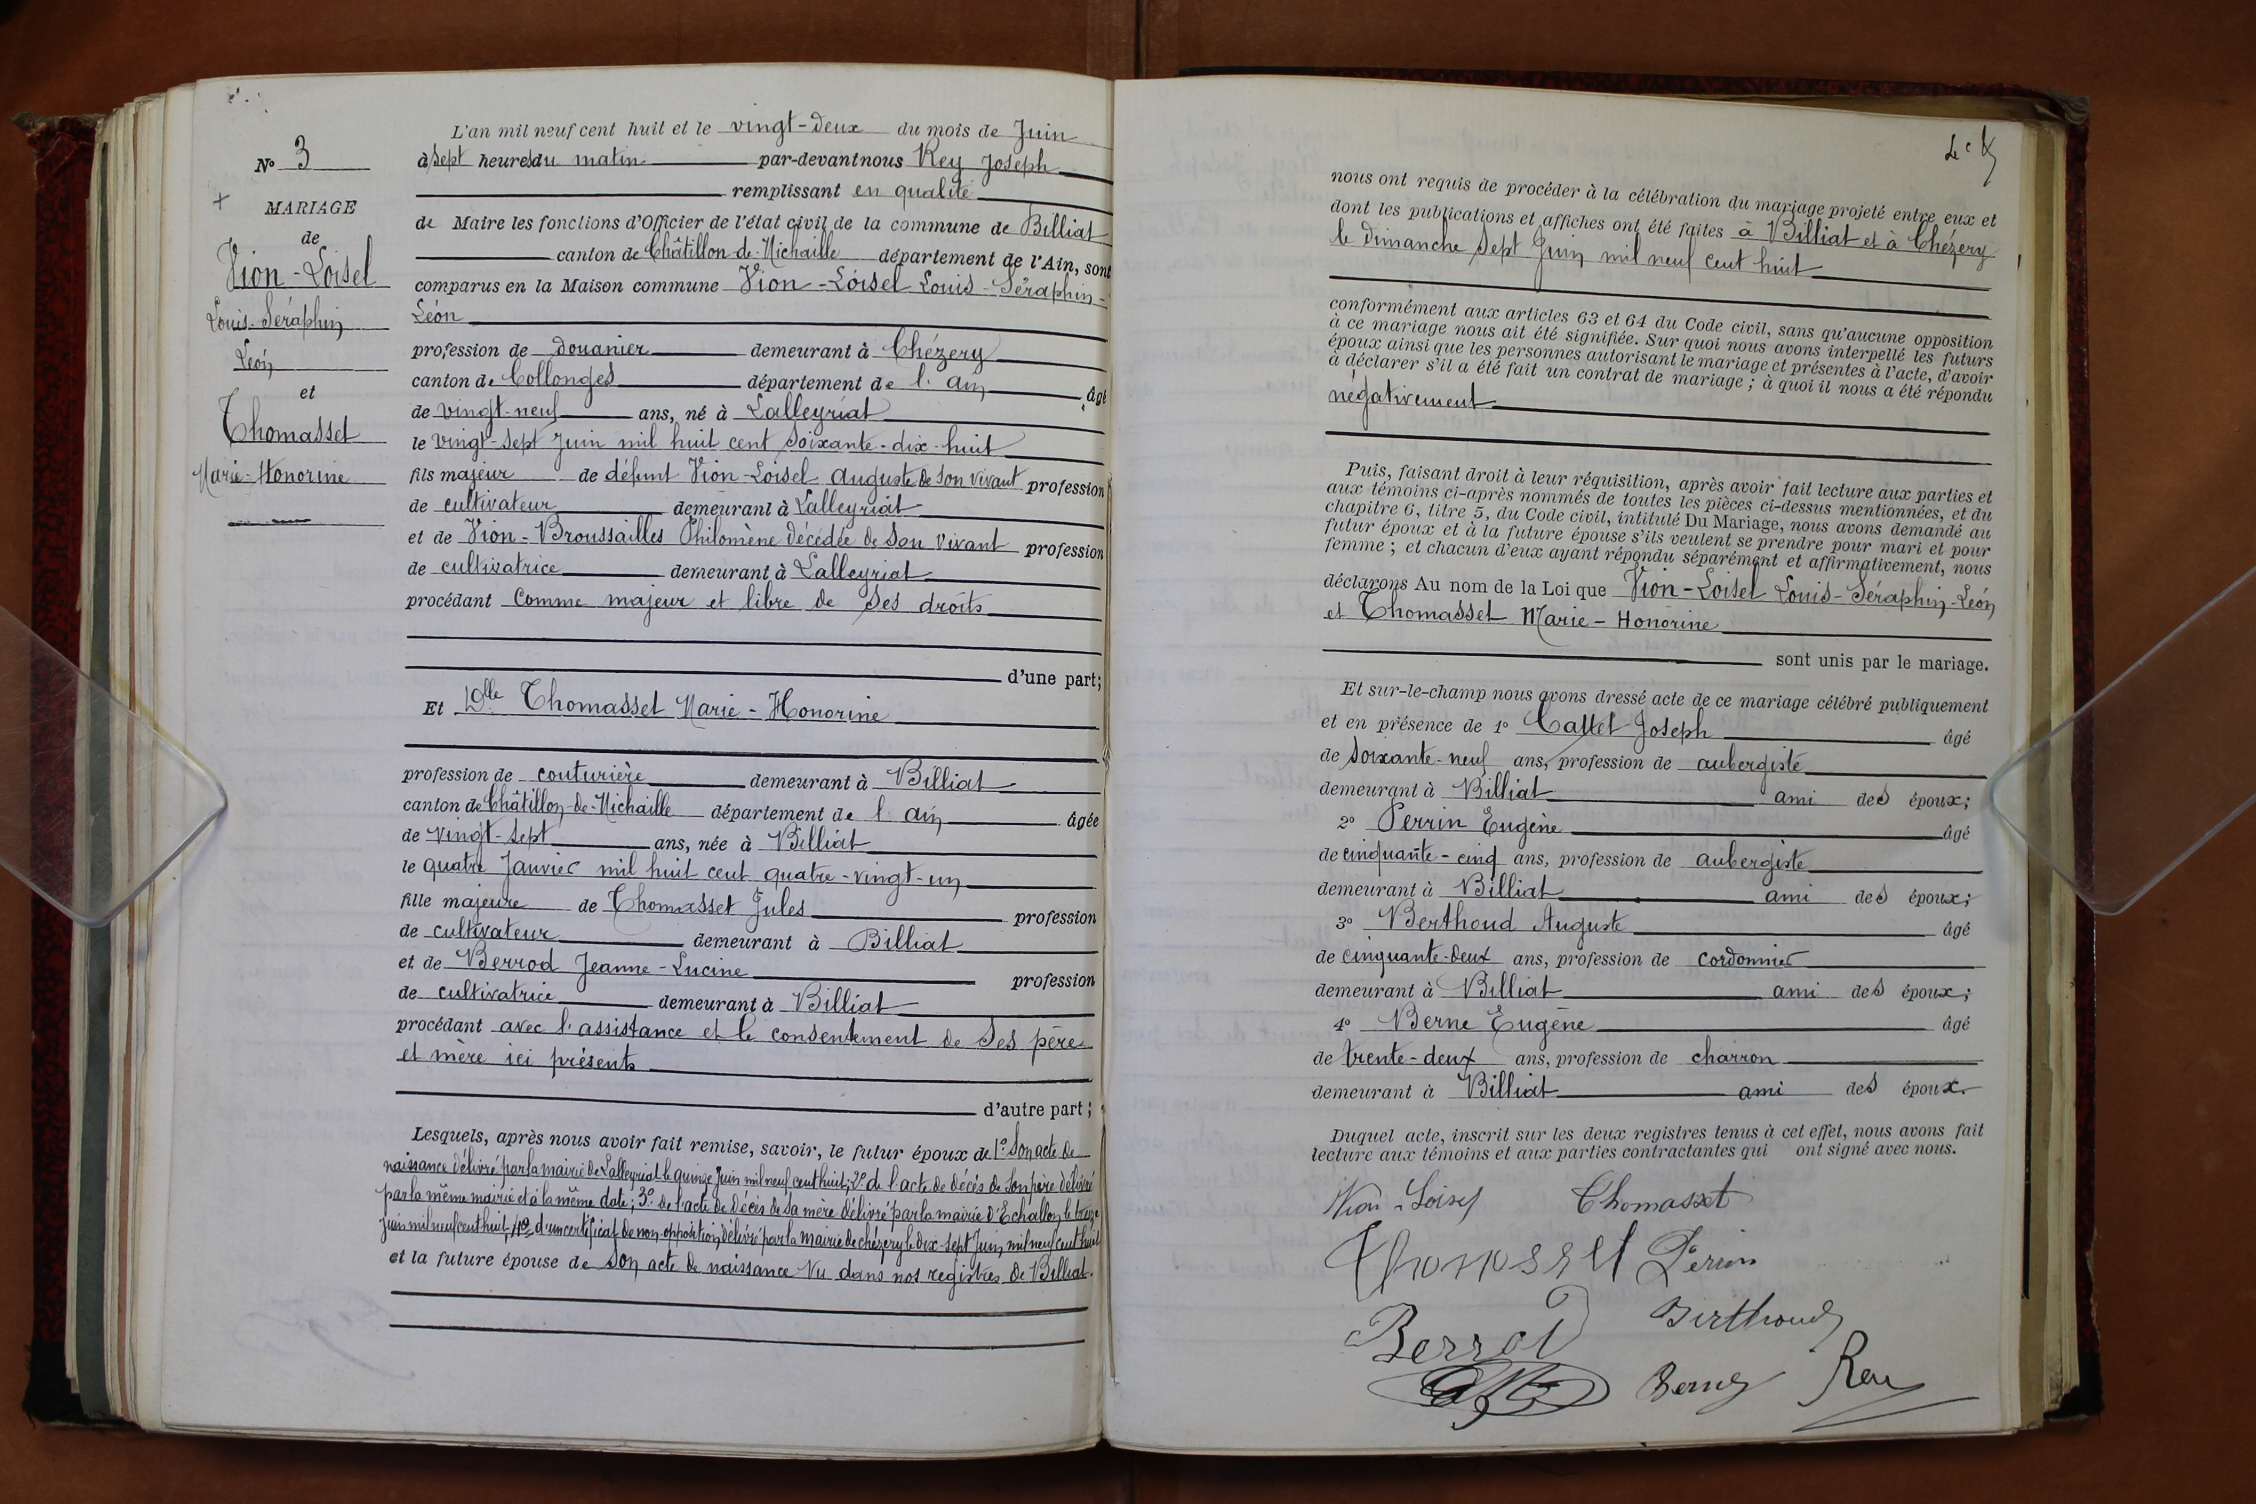 N° 3
MARIAGE
de
Vion-Loisel
Louis-Séraphin
Léon
et
Thomasset
Marie-Honorine
L'an mil neuf cent huit et le vingt-deux du mois de Juin
à sept heures du matin par-devant nous Rey Joseph
remplissant en qualité
de Maire les fonctions d'Officier de l'état civil de la commune de Billiat
canton de Châtillon-de-Michaille département de l'Ain, sont
comparus en la Maison commune Vion-Loisel Louis-Séraphin-
Léon
profession de douanier demeurant à Chézery
canton de Collonges département de l'ain âgé
de vingt-neuf ans, né à Lalleyriat
le vingt-sept Juin mil huit cent soixante-dix-huit
fils majeur de défunt Vion-Loisel Auguste de son vivant profession
de cultivateur demeurant à Lalleyriat
et de Vion-Broussailles Philomène décédée de son vivant profession
de cultivatrice demeurant à Lalleyriat
procédant comme majeur et libre de ses droits
d'une part;
Et Dlle Thomasset Marie-Honorine
profession de couturière demeurant à Billiat
canton de Châtillon-de-Michaille département de l'ain âgée
de vingt-sept ans, née à Billiat
le quatre Janvier mil huit cent quatre-vingt-un
fille majeure de Thomasset Jules profession
de cultivateur demeurant à Billiat
et de Berrod Jeanne-Lucine profession
de cultivatrice demeurant à Billiat
procédant avec l'assistance et le consentement de ses père
et mère ici présents
d'autre part;
Lesquels, après nous avoir fait remise, savoir, le futur époux de 1° son acte de
naissance délivré par la mairie de Lalleyriat le quinze Juin mil neuf cent huit; 2° de l'acte de décès de son père délivré
par la même mairie et à la même date; 3° de l'acte de décès de sa mère délivré par la mairie d'Echallon le treize
Juin mil neuf cent huit; 4° d'un certificat de non-opposition délivré par la mairie de chézery le dix-sept Juin mil neuf cent huit
et la future épouse de son acte de naissance vu dans nos registres de Billiat.
nous ont requis de procéder à la célébration du mariage projeté entre eux et
dont les publications et affiches ont été faites à Billiat et à Chézery
le dimanche sept Juin mil neuf cent huit
conformément aux articles 63 et 64 du Code civil, sans qu'aucune opposition
à ce mariage nous ait été signifiée. Sur quoi nous avons interpellé les futurs
époux ainsi que les personnes autorisant le mariage et présentes à l'acte, d'avoir
à déclarer s'il a été fait un contrat de mariage; à quoi il nous a été répondu
négativement
Puis, faisant droit à leur réquisition, après avoir fait lecture aux parties et
aux témoins ci-après nommés de toutes les pièces ci-dessus mentionnées, et du
chapitre 6, titre 5, du Code civil, intitulé Du Mariage, nous avons demandé au
futur époux et à la future épouse s'ils veulent se prendre pour mari et pour
femme; et chacun d'eux ayant répondu séparément et affirmativement, nous
déclarons Au nom de la Loi que Vion-Loisel Louis-Séraphin-Léon
et Thomasset Marie-Honorine
sont unis par le mariage.
Et sur-le-champ nous avons dressé acte de ce mariage célébré publiquement
et en présence de 1° Cattet Joseph âgé
de soixante-neuf ans, profession de aubergiste
demeurant à Billiat ami des époux;
2° Perrin Eugène âgé
de cinquante-cinq ans, profession de aubergiste
demeurant à Billiat ami des époux;
3° Berthoud Auguste âgé
de cinquante-deux ans, profession de cordonnier
demeurant à Billiat ami des époux;
4° Berne Eugène âgé
de trente-deux ans, profession de charron
demeurant à Billiat ami des époux.
Duquel acte, inscrit sur les deux registres tenus à cet effet, nous avons fait
lecture aux témoins et aux parties contractantes qui ont signé avec nous.
Vion-Loisel Thomasset
Thomasset Perrin
Berrod Berthoud
Berne Rey